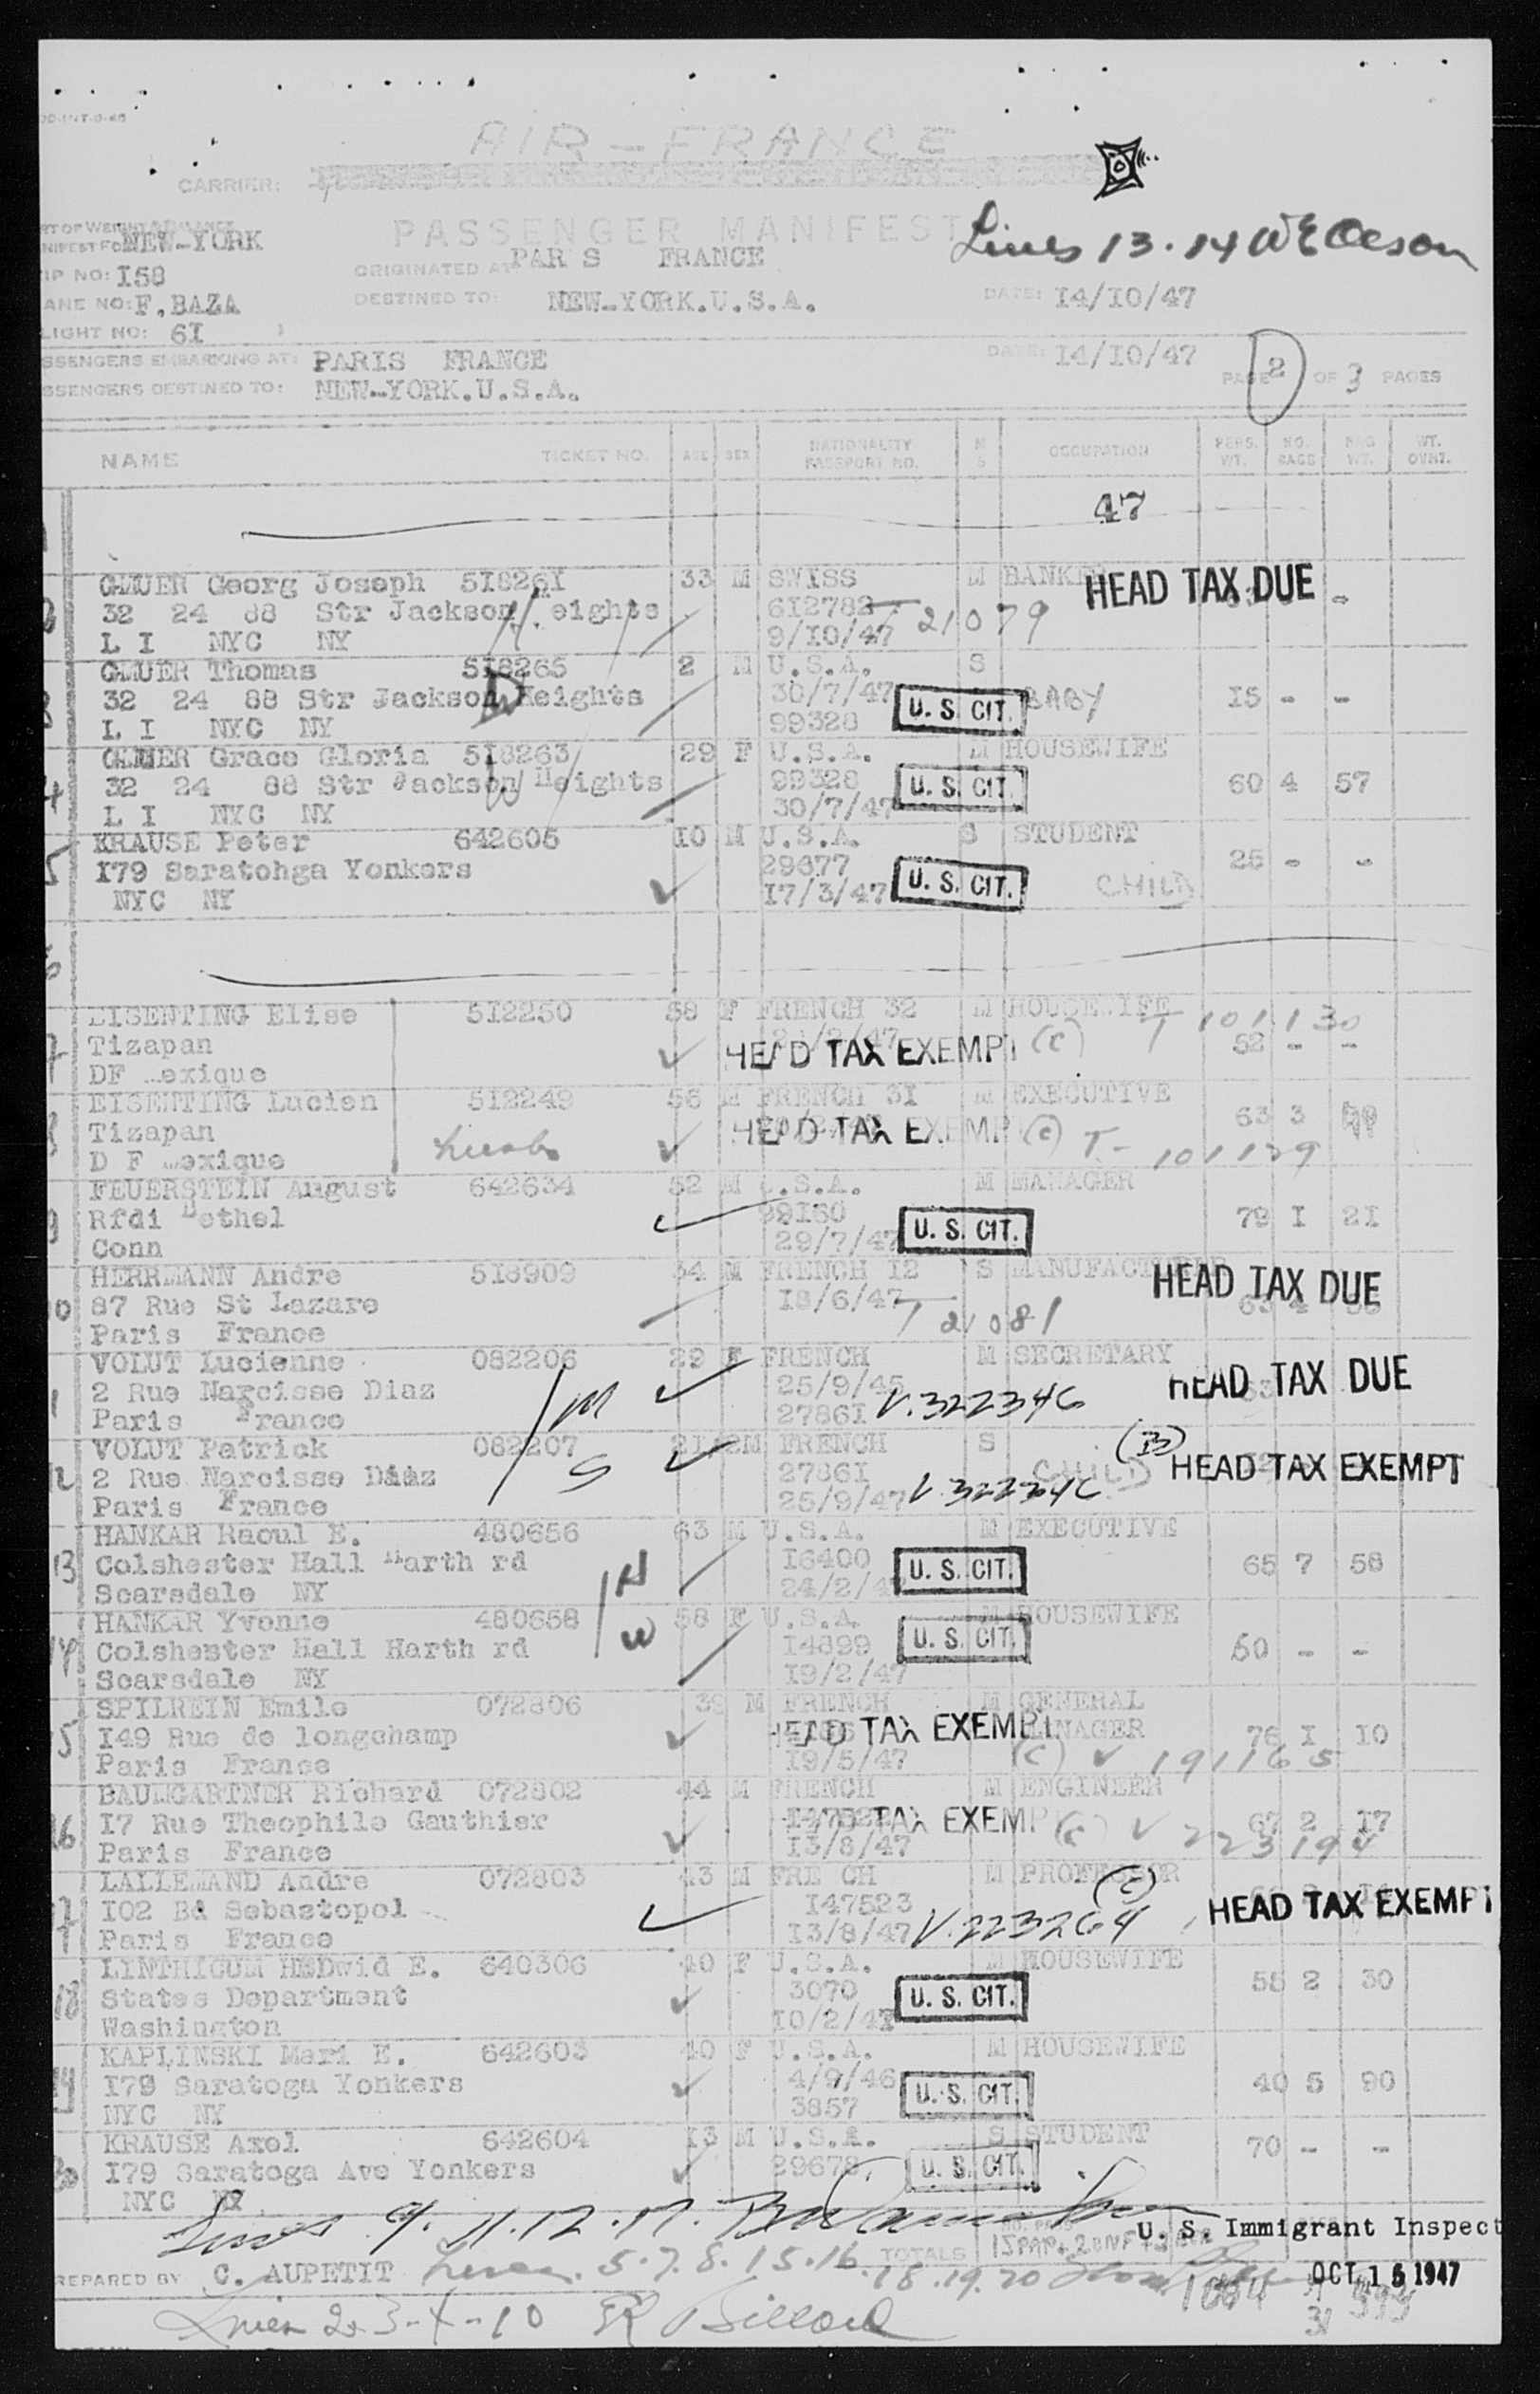 AIR-FRANCE
CARRIER:
PASSENGER MANIFEST
Lines 13.14 W E Oleson
NEW-YORK
ORIGINATED AT: PAR S FRANCE
IP NO: I58
DESTINED TO: NEW-YORK.U.S.A.
DATE: I4/IO/47
ANE NO: F.BAZA
LIGHT NO: 6I
SSENGERS EMBARKING AT: PARIS FRANCE
DATE: I4/IO/47
PAGE 2 OF 3 PAGES
SSENGERS DESTINED TO: NEW-YORK.U.S.A.
NAME TICKET NO. AGE SEX NATIONALITY PASSPORT NO. M S OCCUPATION PERS. WT. NO. BAGS BAG WT. WT. OVHZ.
47
GMUER Georg Joseph 5I826I 33 M SWISS M BANKER HEAD TAX DUE
32 24 88 Str Jackson H. eights 6I2782 T 21079
L I NYC NY 9/IO/47
GMUER Thomas 5I8265 2 M U.S.A. S
32 24 88 Str Jackson Heights 30/7/47 U. S. CIT. BABY I5 - -
L I NYC NY 99328
GMUER Grace Gloria 5I8263 29 F U.S.A. M HOUSEWIFE
32 24 88 Str Jackson Heights W 99328 U. S. CIT. 60 4 57
L I NYC NY 30/7/47
KRAUSE Peter 642605 IO M U.S.A. S STUDENT
I79 Saratohga Yonkers 29677 U. S. CIT. CHILD 25 - -
NYC NY I7/3/47
EISENTING Elise 5I2250 58 F FRENCH 32 M HOUSEWIFE T 101130
Tizapan HEAD TAX EXEMPT (C) 52 - -
DF exique
EISENTING Lucien 5I2249 56 M FRENCH 3I M EXECUTIVE
Tizapan HEAD TAX EXEMP (C) T- 101129 63 3
D F exique
FEUERSTEIN August 642634 52 M U.S.A. M MANAGER
Rfdi Bethel 99I60 U. S. CIT. 79 I 2I
Conn 29/7/47
HERRMANN Andre 5I8909 34 M FRENCH I2 S MANUFACTURER HEAD TAX DUE
87 Rue St Lazare I8/6/47 T 21081 63 4
Paris France
VOLUT Lucienne 082206 29 F FRENCH M SECRETARY HEAD TAX DUE
2 Rue Narcisse Diaz M 25/9/45 V.322346
Paris France 2786I
VOLUT Patrick 082207 2M FRENCH S (B) HEAD TAX EXEMPT
2 Rue Narcisse Diaz S 2786I CHILD
Paris France 25/9/47 V.322346
HANKAR Raoul E. 480656 63 M U.S.A. M EXECUTIVE
Colshester Hall Harth rd H I6400 U. S. CIT. 65 7 58
Scarsdale NY 24/2/47
HANKAR Yvonne 480658 58 F U.S.A. M HOUSEWIFE
Colshester Hall Harth rd W I4899 U. S. CIT. 50 - -
Scarsdale NY I9/2/47
SPILREIN Emile 072806 39 M FRENCH M GENERAL
I49 Rue de longchamp HEAD TAX EXEMPT MANAGER 76 I IO
Paris France I9/5/47 (C) V 191165
BAUMGARTNER Richard 072802 44 M FRENCH M ENGINEER
I7 Rue Theophile Gauthier TAX EXEMP (C) V 223194 67 2 I7
Paris France I3/8/47
LALLEMAND Andre 072803 43 M FRE CH M PROFESSOR (C)
I02 Bd Sebastopol I47523 HEAD TAX EXEMPT
Paris France I3/8/47 V.223264
LINTHICUM HEDwid E. 640306 40 F U.S.A. M HOUSEWIFE
States Department 3070 U. S. CIT. 55 2 30
Washington IO/2/47
KAPLINSKI Mari E. 642603 40 F U.S.A. M HOUSEWIFE
I79 Saratoga Yonkers 4/9/46 U. S. CIT. 40 5 90
NYC NY 3857
KRAUSE Axel 642604 I3 M U.S.A. S STUDENT
I79 Saratoga Ave Yonkers 29678 U. S. CIT. 70 - -
NYC NY
Lines 9.11.12.17.
U. S. Immigrant Inspect
REPARED BY C. AUPETIT Lines 5.7.8.15.16.18.19.20 TOTALS
OCT 15 1947
Lines 2-3-4-10